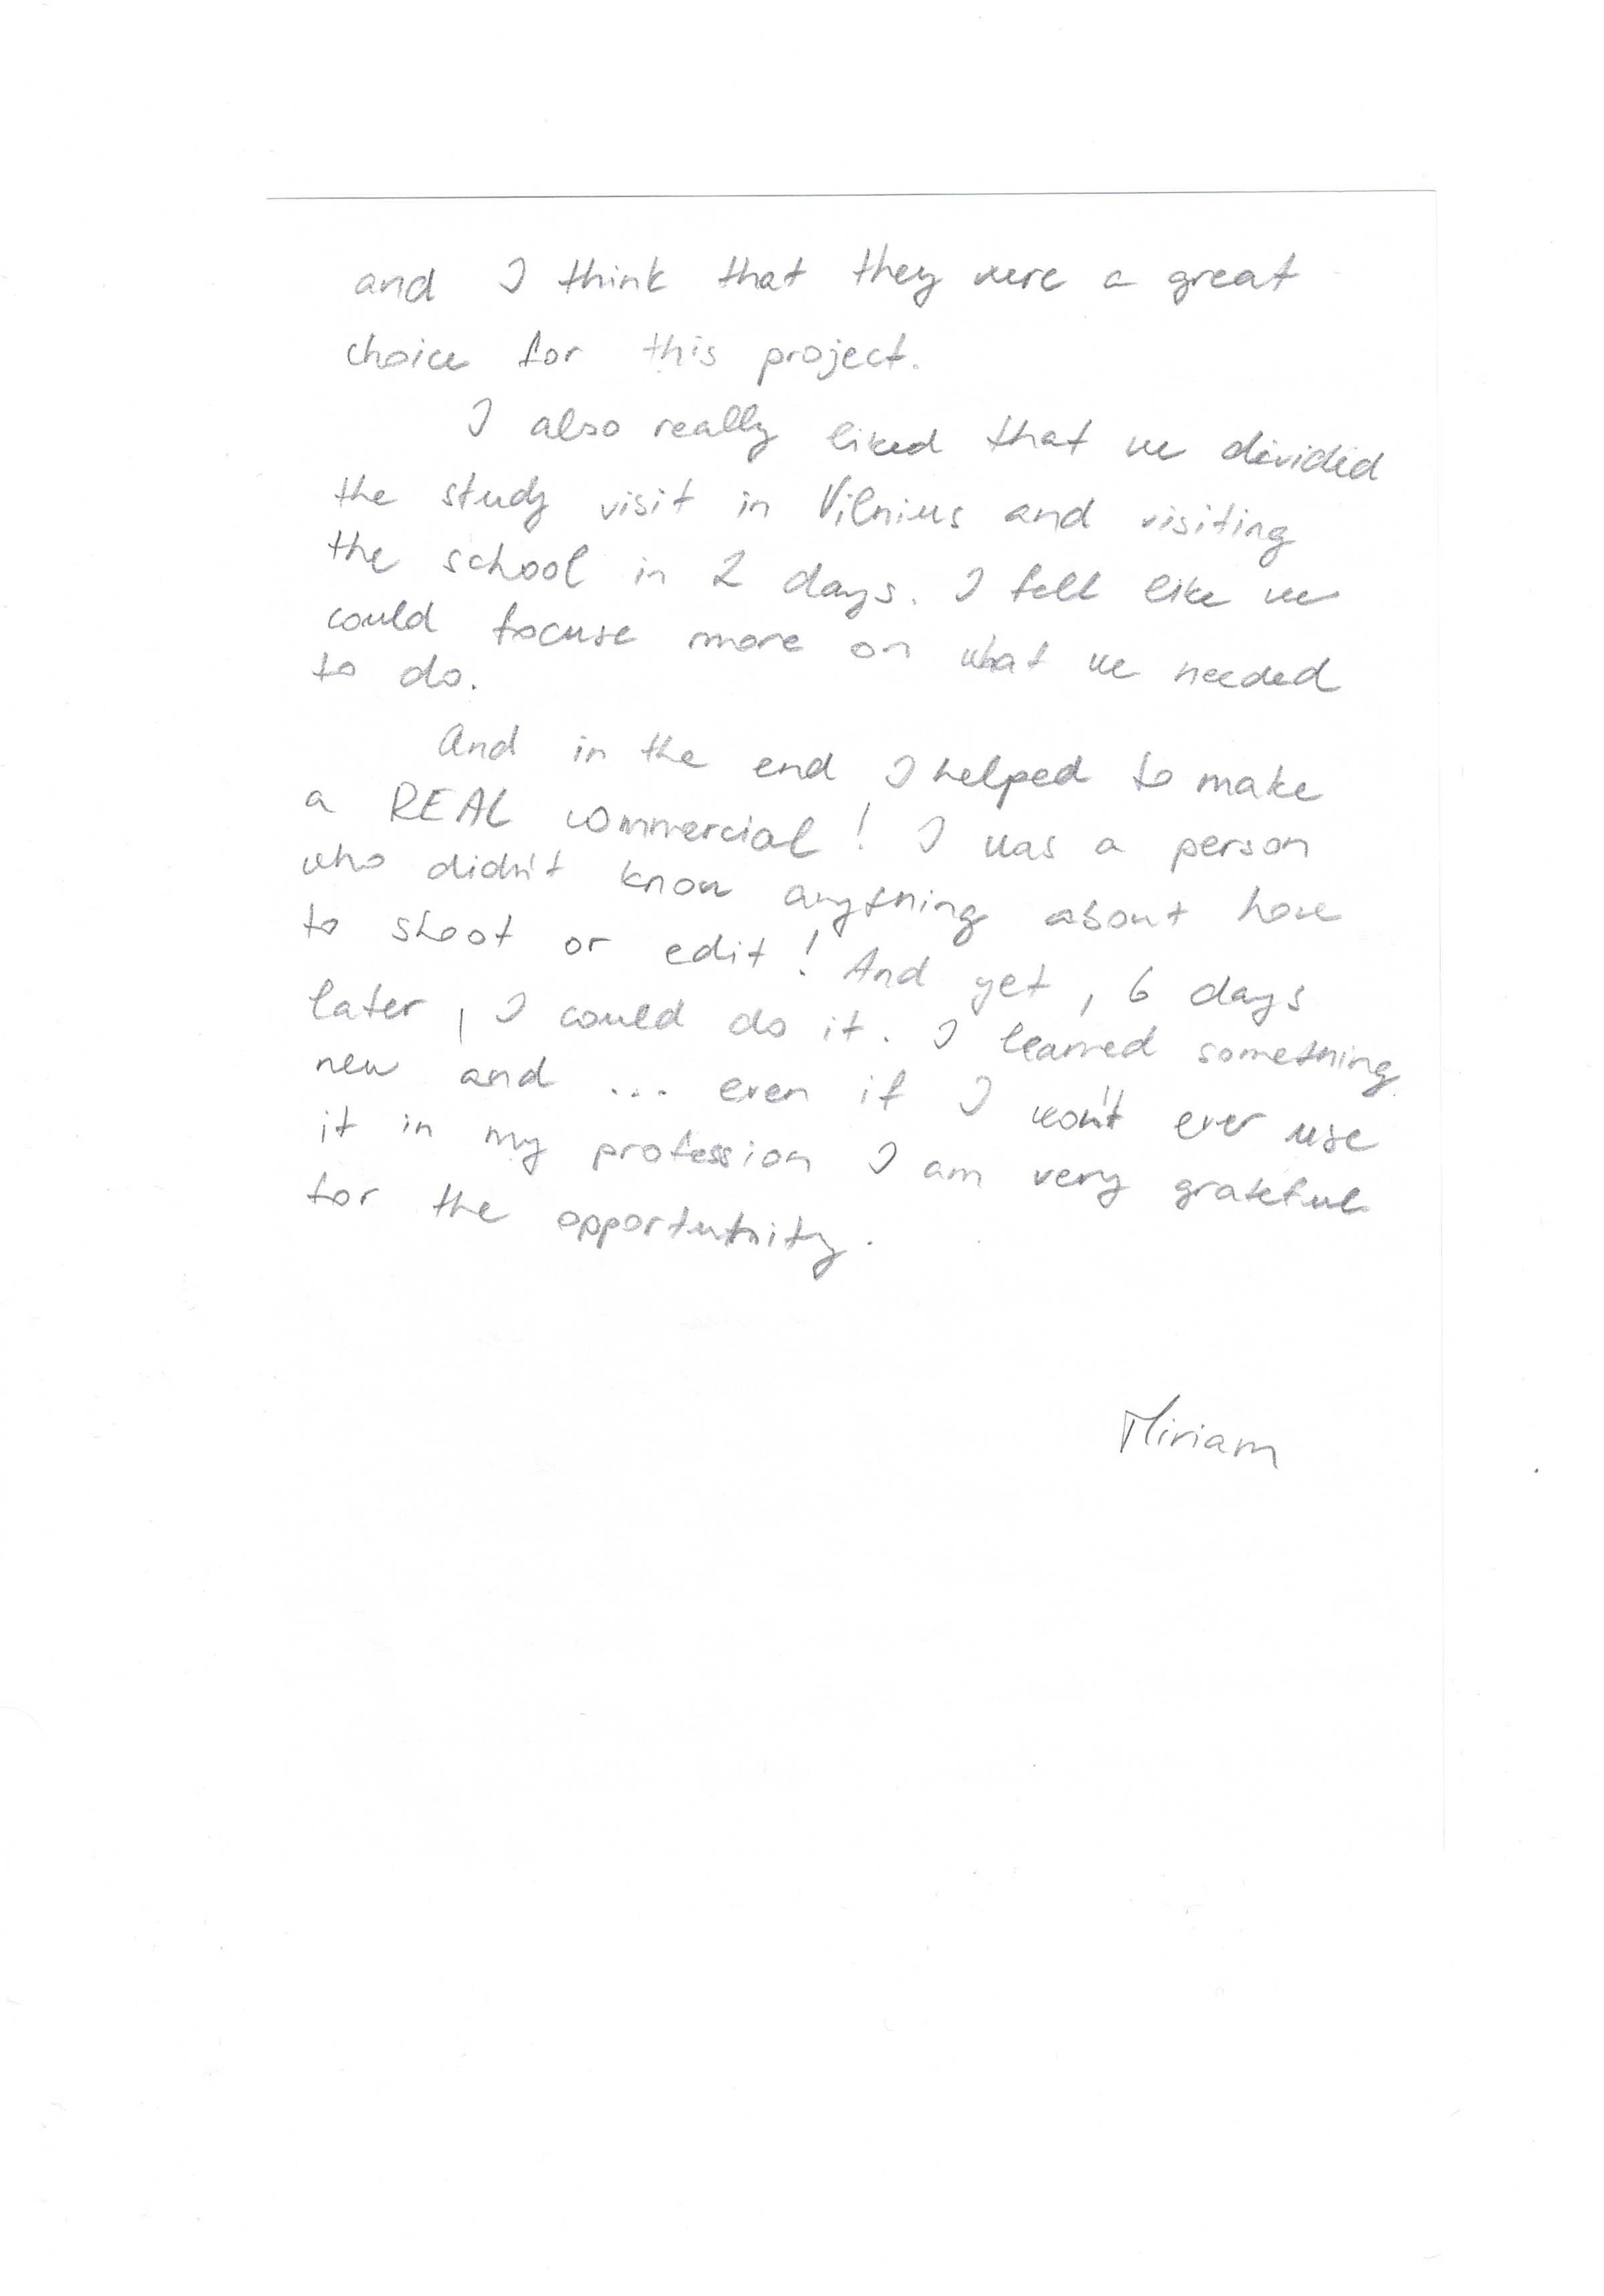 and I think that they were a great
choice for this project.
I also really liked that we divided
the study visit in Vilnius and visiting
the school in 2 days. I felt like we
could focuse more on what we needed
to do.
And in the end I helped to make
a REAL commercial! I was a person
who didn't know anything about how
to shoot or edit! And yet, 6 days
later, I could do it. I learned something
new and ... even if I won't ever use
it in my profession I am very grateful
for the opportutnity.
Miriam